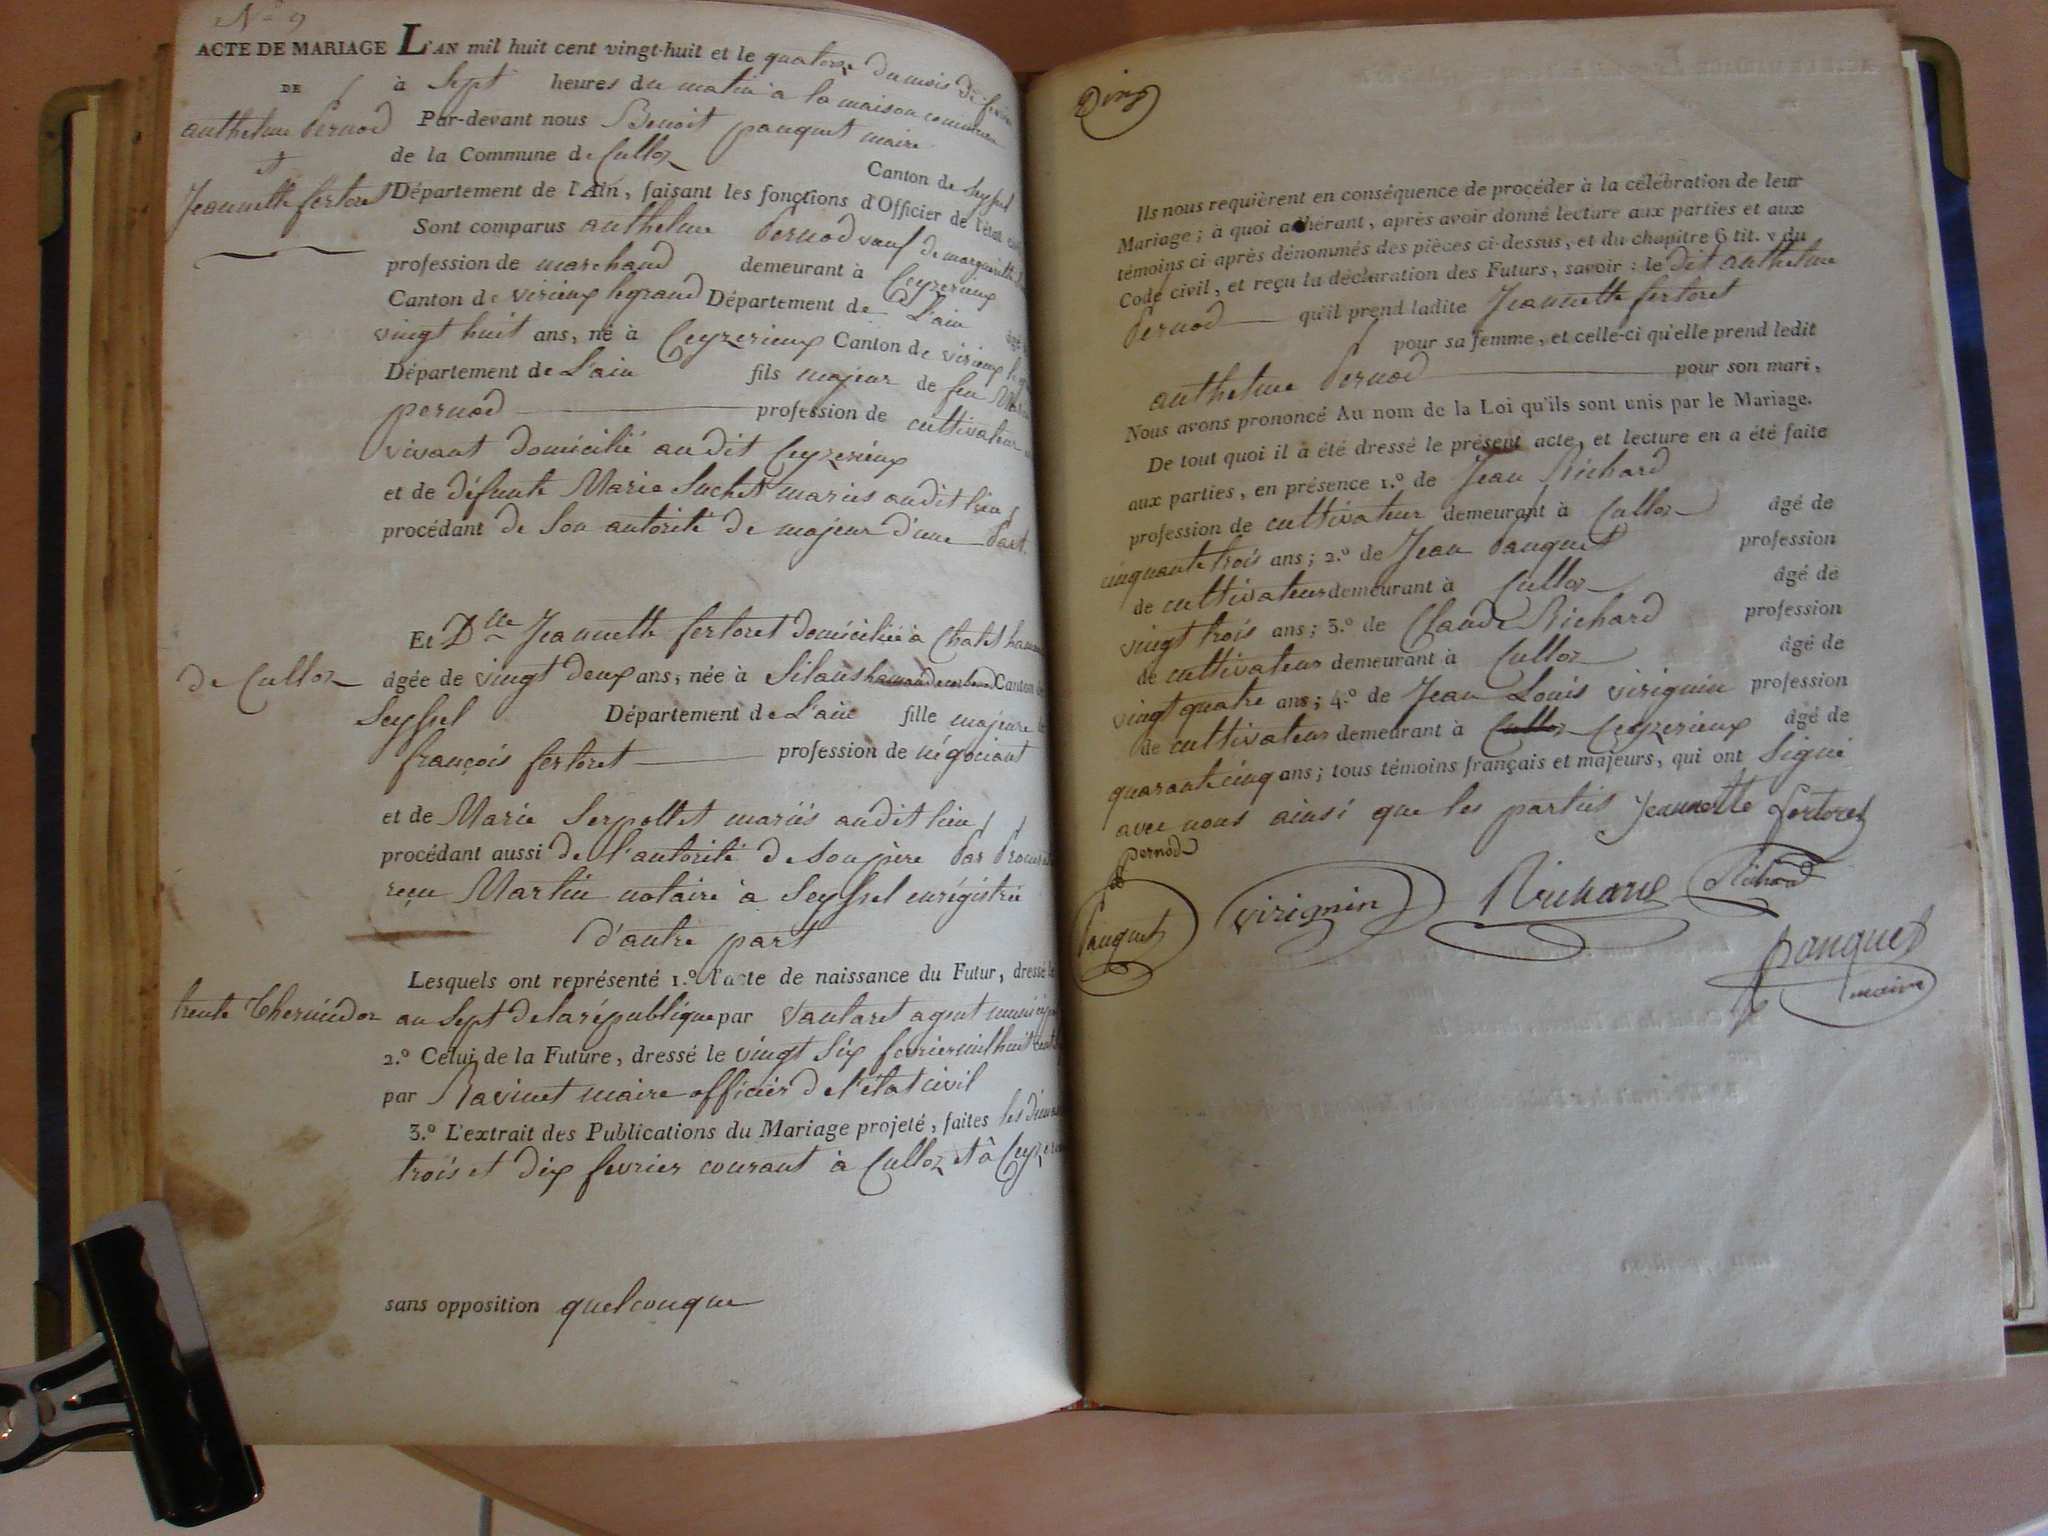 N° 9
ACTE DE MARIAGE L'AN mil huit cent vingt-huit et le quatorze du mois de
DE
à sept heures du matin à la maison commune
anthelme Pernod Par-devant nous Benoit pauquet maire
et
de la Commune de Culloz Canton de Seyssel
Jeannette fertoret Département de l'Ain, faisant les fonctions d'Officier de l'état
Sont comparus anthelme Pernod veuf de marguerite
profession de marchand demeurant à Ceyzerieux
Canton de virieux legrand Département de L'ain âgé
vingt huit ans, né à Ceyzerieux Canton de virieux
Département de L'ain fils majeur de feu
pernod profession de cultivateur
vivant domicilié audit Ceyzerieux
et de défunte Marie Suchet mariés audit lieu
procédant de Son autorité de majeur d'une Part.
Et Dlle Jeannette fertoret domiciliée à Chatel
de Culloz âgée de vingt deux ans, née à Silans Canton de
Seyssel Département de L'ain fille majeure de
françois fertoret profession de négociant
et de Marie Serpollet mariés audit lieu
procédant aussi de l'autorité de son père Par
reçu Martin notaire à Seyssel enrégistrée
d'autre part
Lesquels ont représenté 1.° l'acte de naissance du Futur, dressé le
trente thermidor an Sept de la république par vantaret agent
2.° Celui de la Future, dressé le vingt Six fevrier mil huit cent
par Ravinet maire officier de l'état civil
3.° L'extrait des Publications du Mariage projeté, faites les
trois et dix fevrier courant à Culloz et à
sans opposition quelconque
Ils nous requièrent en conséquence de procéder à la célébration de leur
Mariage; à quoi adhérant, après avoir donné lecture aux parties et aux
témoins ci-après dénommés des pièces ci-dessus, et du chapitre 6 tit. v du
Code civil, et reçu la déclaration des Futurs, savoir : le dit anthelme
Pernod qu'il prend ladite Jeannette fertoret
pour sa femme, et celle-ci qu'elle prend ledit
anthelme Pernod pour son mari,
Nous avons prononcé Au nom de la Loi qu'ils sont unis par le Mariage.
De tout quoi il a été dressé le présent acte, et lecture en a été faite
aux parties, en présence 1.° de Jean Richard
profession de cultivateur demeurant à Culloz âgé de
cinquante trois ans; 2.° de Jean Pauquet profession
de cultivateur demeurant à Culloz âgé de
vingt trois ans; 3.° de Claude Richard profession
de cultivateur demeurant à Culloz âgé de
vingt quatre ans; 4.° de Jean Louis virignin profession
de cultivateur demeurant à Culloz Ceyzerieux âgé de
quarante cinq ans; tous témoins français et majeurs, qui ont Signé
avec nous ainsi que les parties Jeannette fertoret
Pernod
Pauquet virignin Richard Richard
pauquet
maire